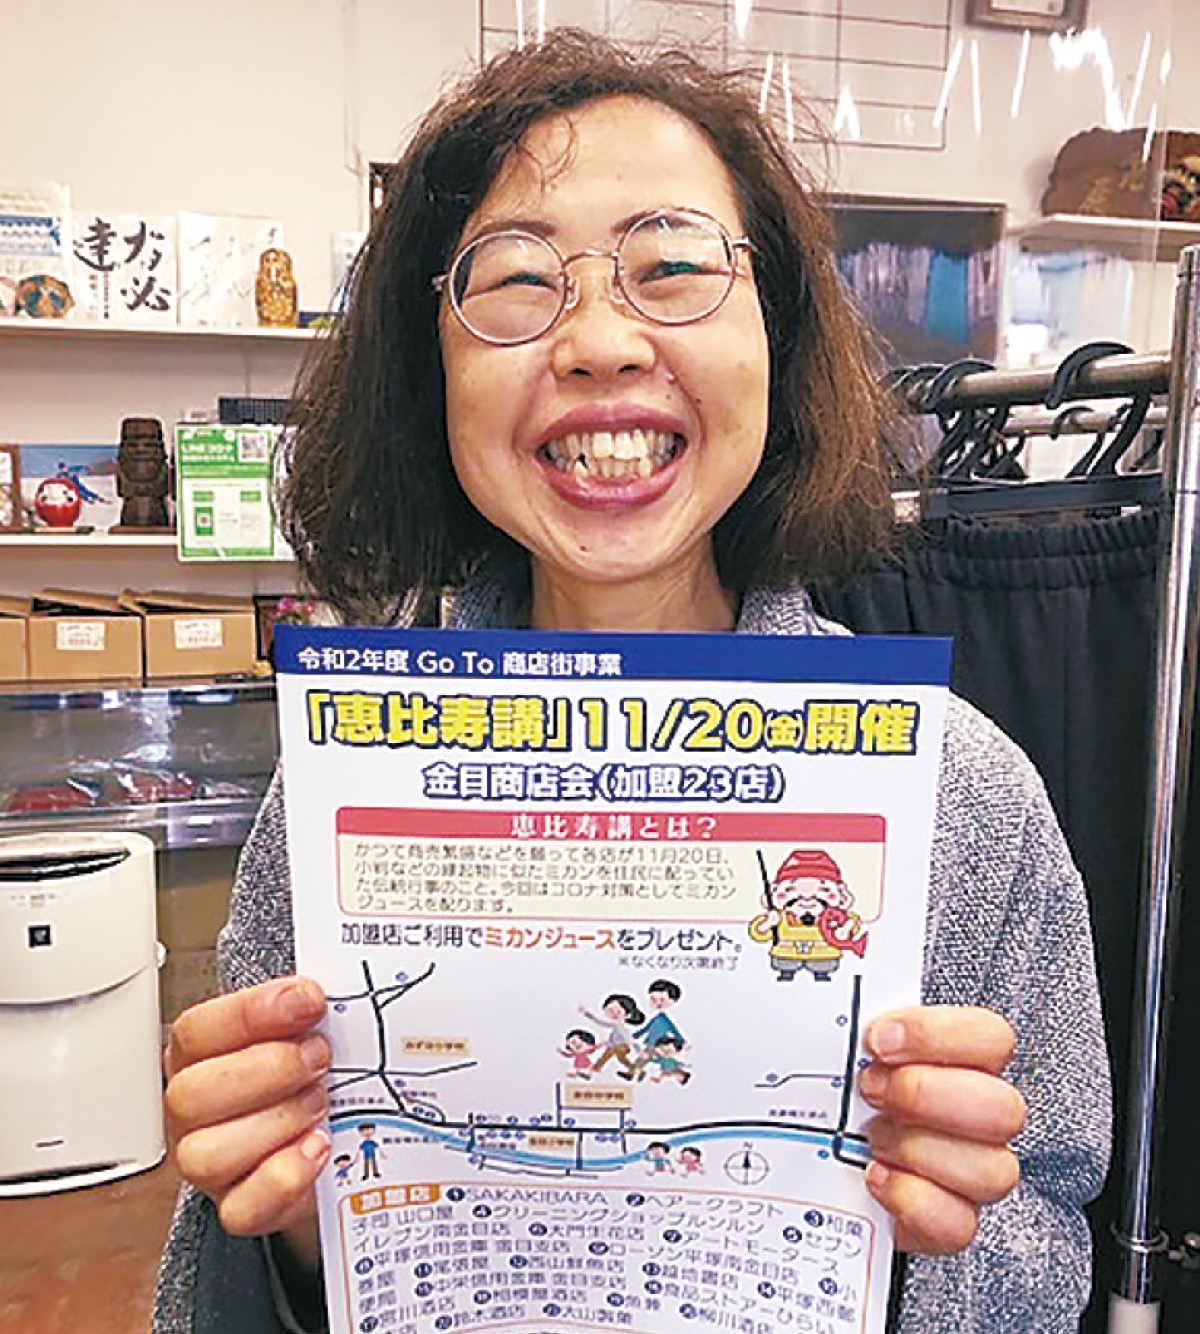 必
達
令和2年度 Go To 商店街事業
「恵比寿講」11/20(金)開催
金目商店会(加盟23店)
恵比寿講とは?
かつて商売繁盛などを願って各店が11月20日、
小判などの縁起物に似たミカンを住民に配ってい
た伝統行事のこと。今回はコロナ対策としてミカン
ジュースを配ります。
加盟店ご利用でミカンジュースをプレゼント。
※なくなり次第終了
みずほ小学校
金目中学校
金目小学校
N
加盟店 ①SAKAKIBARA ②ヘアークラフト ③和菓
子司 山口屋 ④クリーニングショップルンルン ⑤セブン
イレブン南金目店 ⑥大門生花店 ⑦アートモータース
⑧平塚信用金庫 金目支店 ⑨ローソン平塚南金目店 ⑩小
巻屋 ⑪尾張屋 ⑫西山鮮魚店 ⑬越地書店 ⑭平塚西郵
便局 ⑮中栄信用金庫 金目支店 ⑯食品ストアーひらい
⑰宮川酒店 ⑱相模屋酒店 ⑲魚舞 ⑳柳川酒店
㉑鈴木酒店 ㉒大山製菓